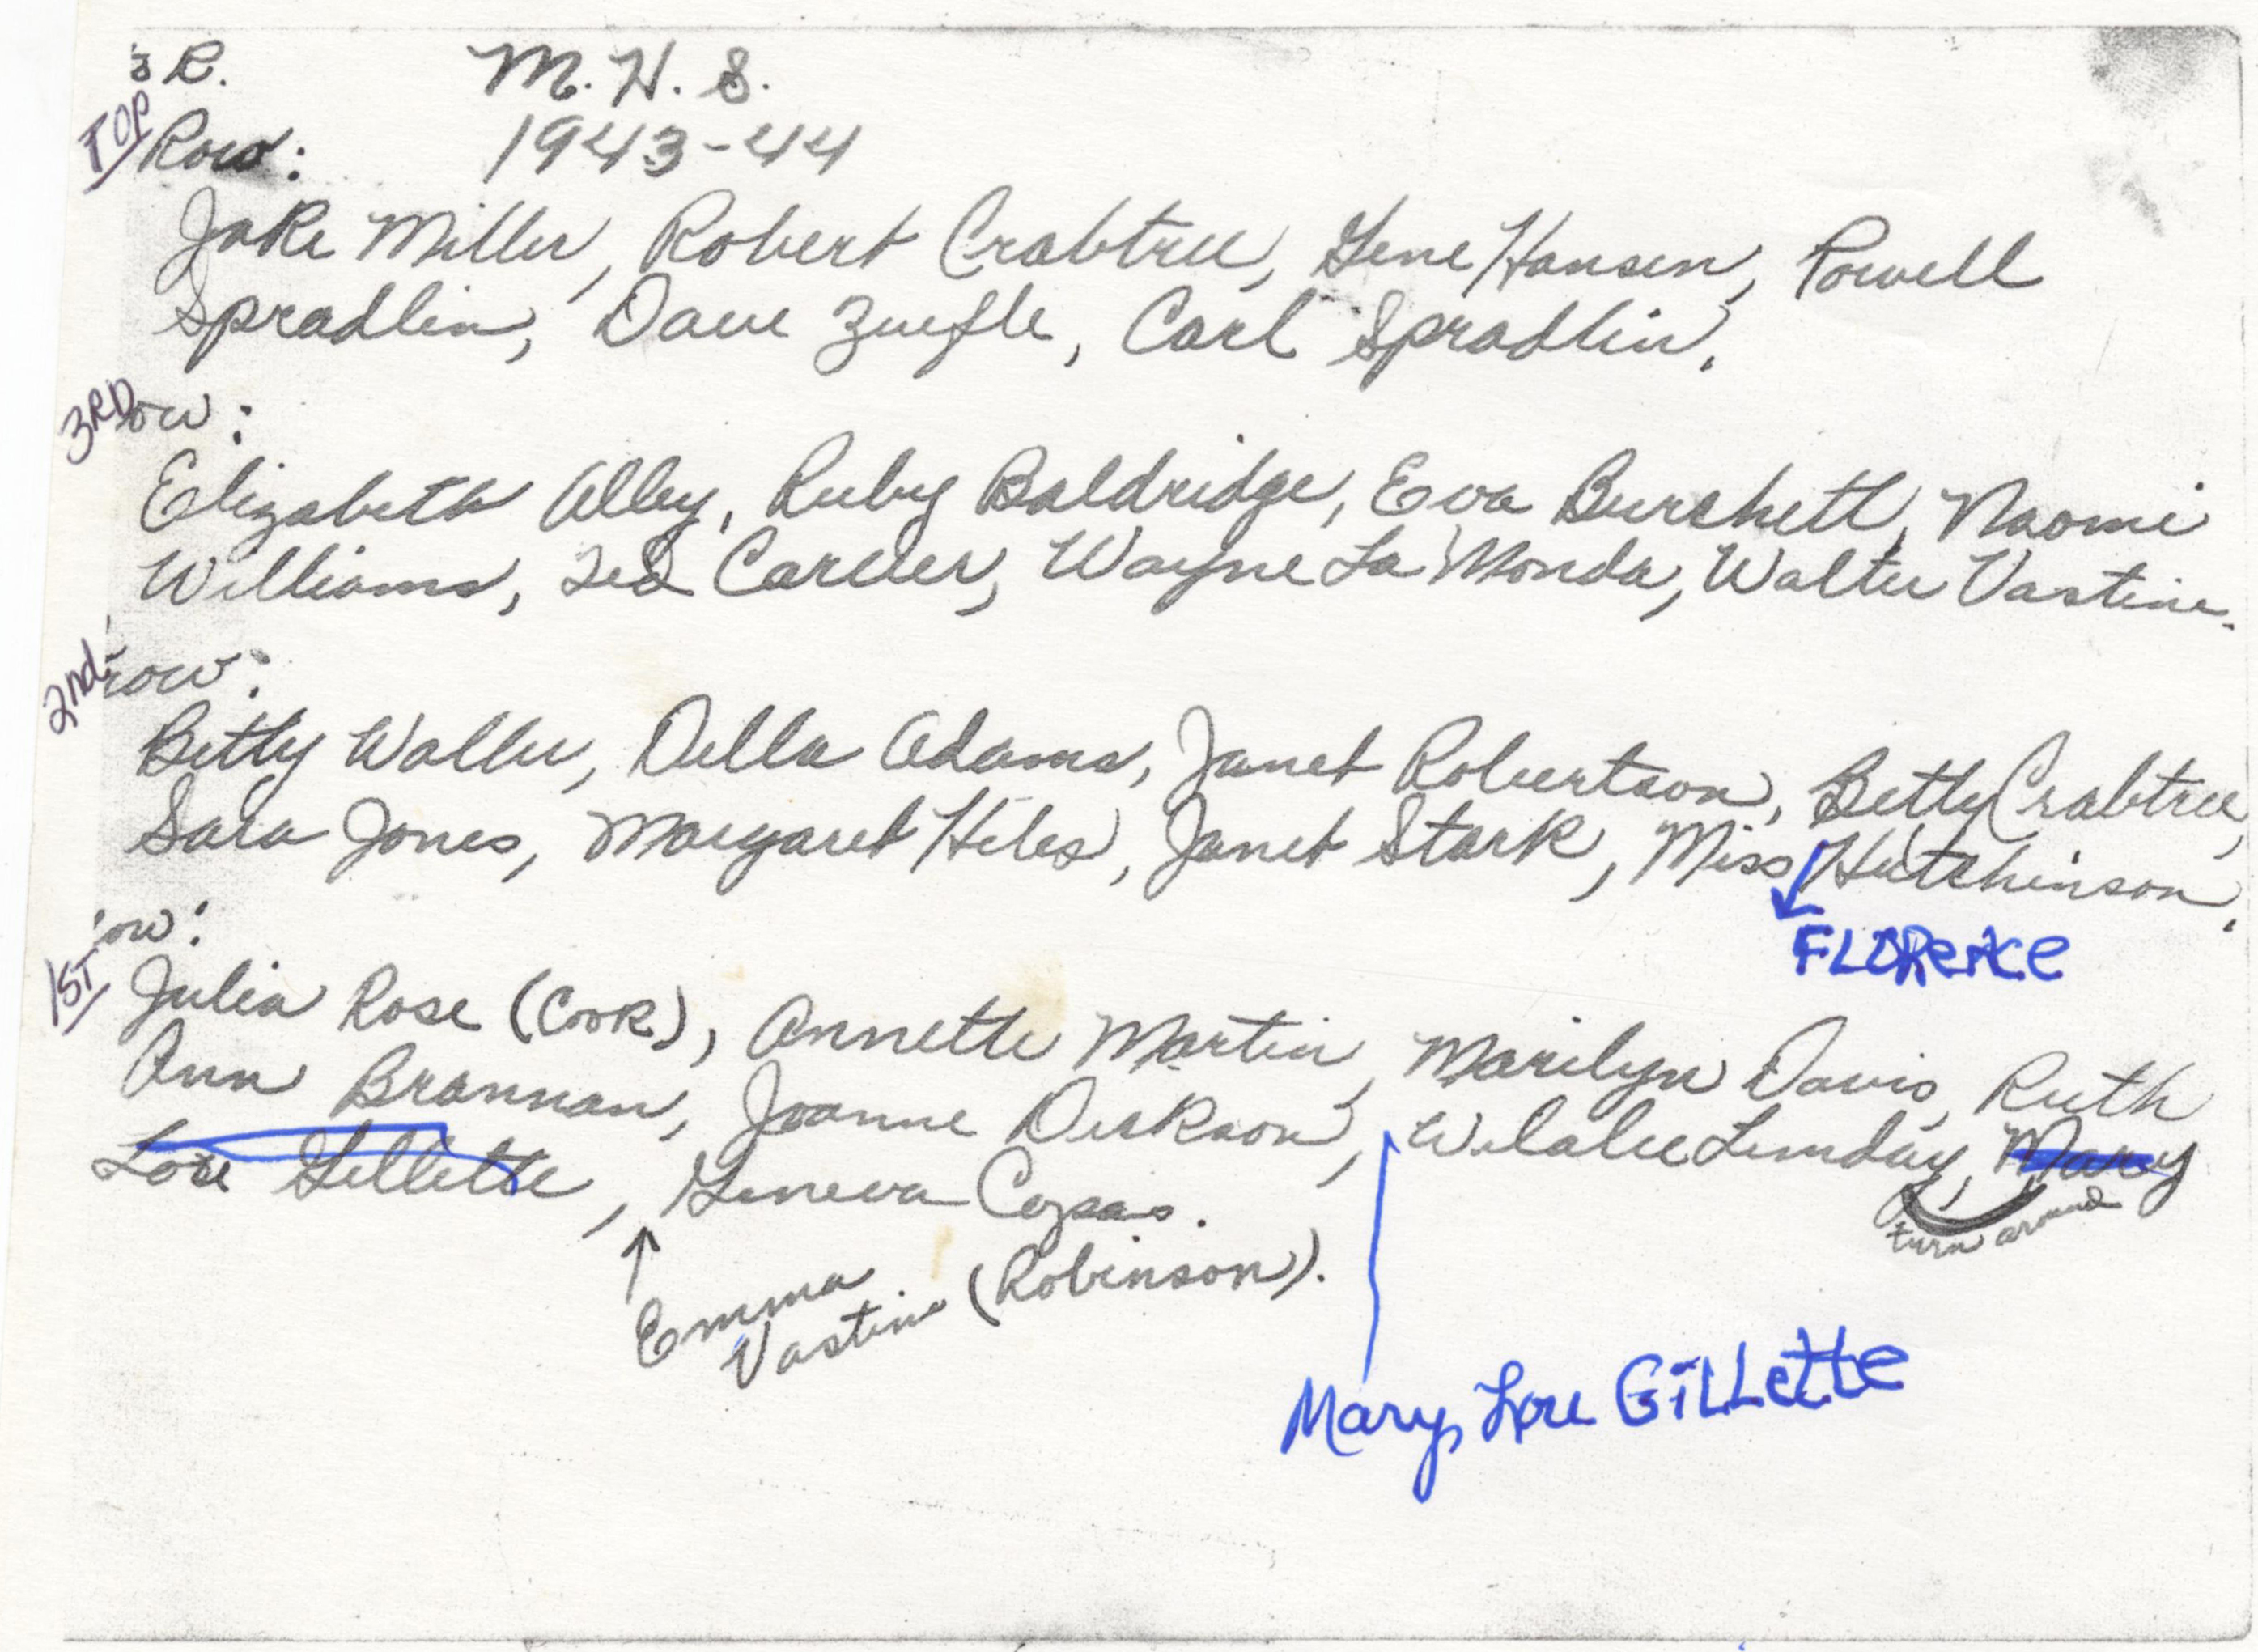 R. M. H. S.
TOP Row: 1943-44
Jake Miller, Robert Crabtree, Gene Hansen, Powell
Spradlin, Dave Zuefle, Carl Spradlin.
3RD ow:
Elizabeth Alley, Ruby Baldridge, Eva Burchett, Naomi
Williams, Ted Carver, Wayne La Monda, Walter Vastine.
2nd row:
Betty Waller, Della Adams, Janet Robertson, Betty Crabtree,
Sara Jones, Margaret Hiles, Janet Stark, Miss Hutchinson.
FLORENCE
1ST ow:
Julia Rose (Cook), Annette Martin, Marilyn Davis, Ruth
Ann Brannan, Joanne Dickson, Wilalee Lunday, Mary
Lou Gillette, Geneva Copas.
turn around
Emma
Vastine (Robinson).
Mary Lou GiLLette